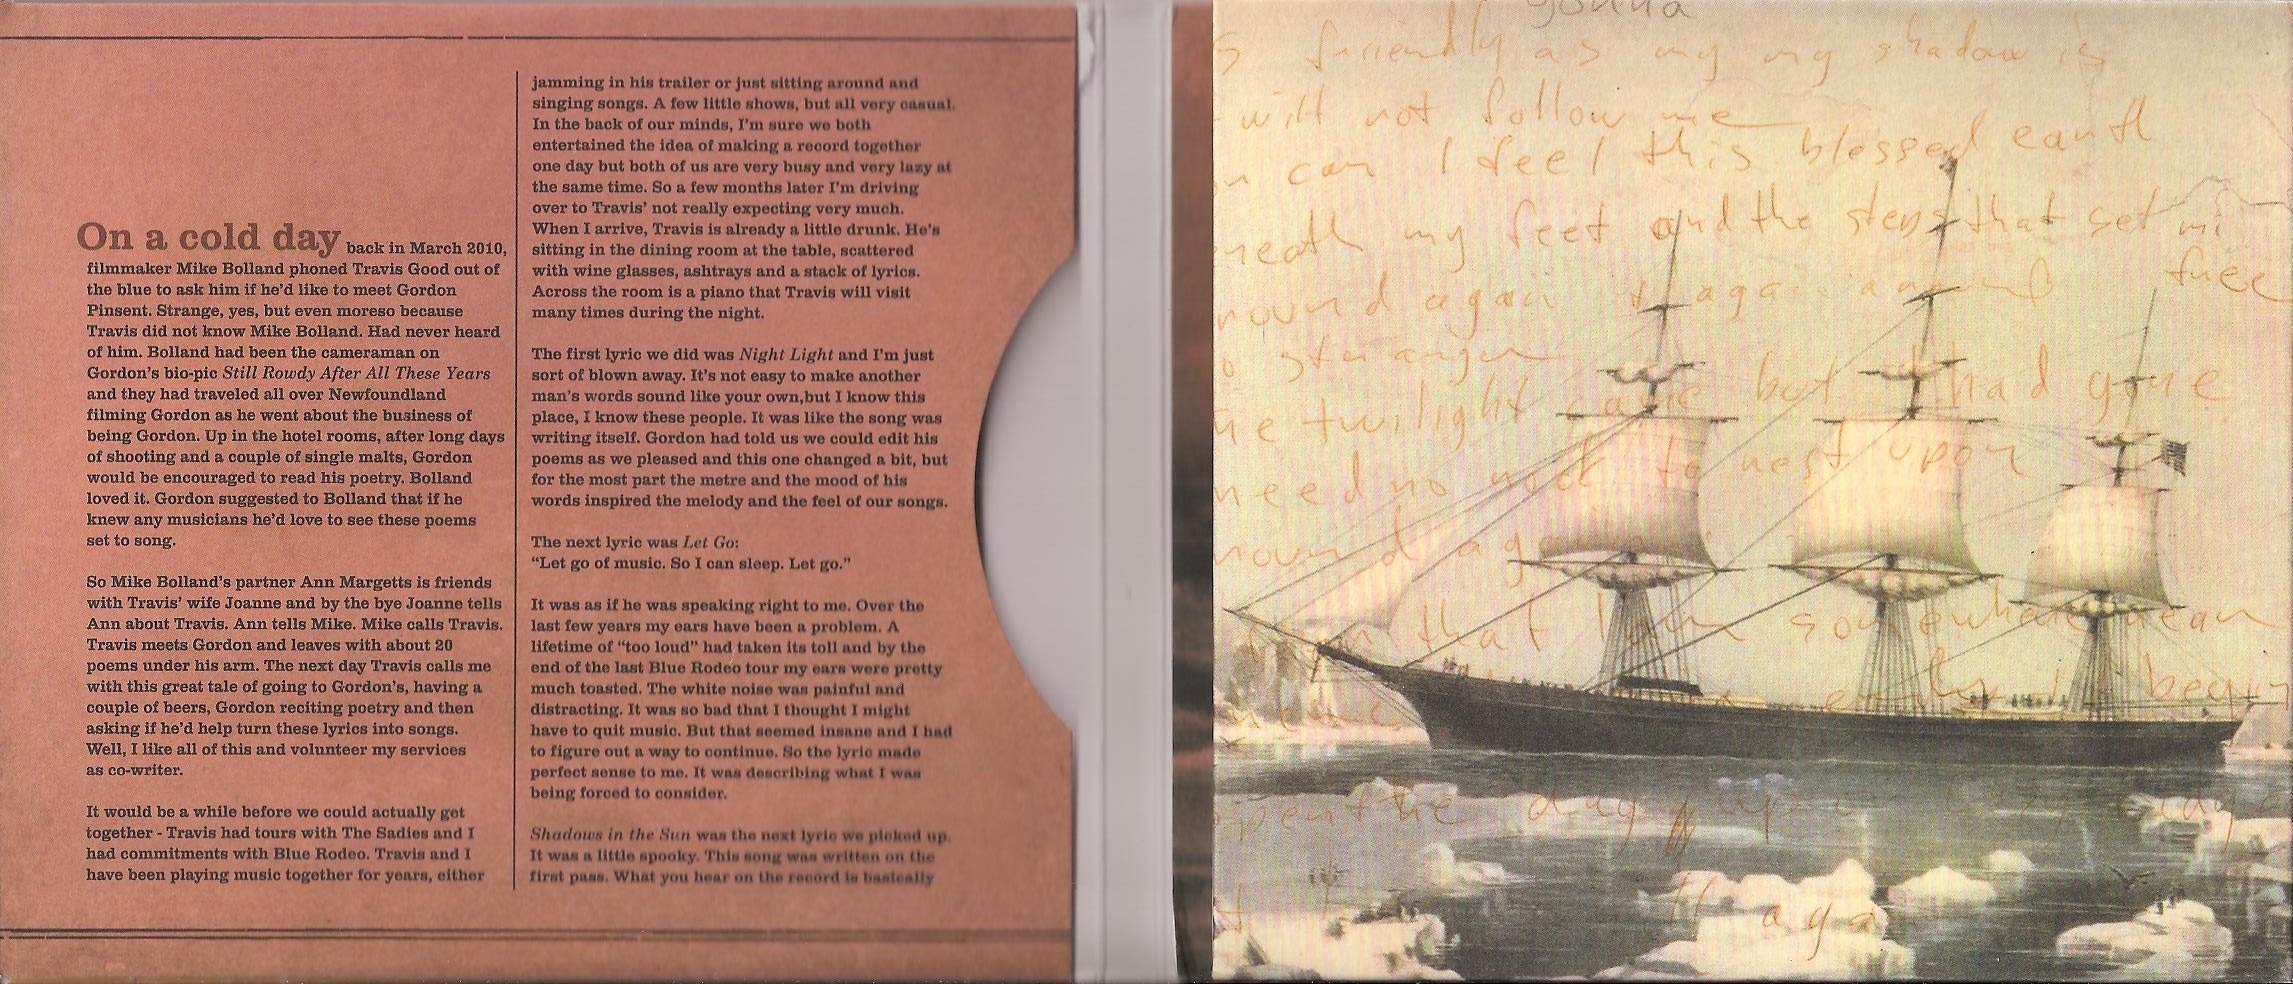 On a cold day back in March 2010,
filmmaker Mike Bolland phoned Travis Good out of
the blue to ask him if he'd like to meet Gordon
Pinsent. Strange, yes, but even moreso because
Travis did not know Mike Bolland. Had never heard
of him. Bolland had been the cameraman on
Gordon's bio-pic Still Rowdy After All These Years
and they had traveled all over Newfoundland
filming Gordon as he went about the business of
being Gordon. Up in the hotel rooms, after long days
of shooting and a couple of single malts, Gordon
would be encouraged to read his poetry. Bolland
loved it. Gordon suggested to Bolland that if he
knew any musicians he'd love to see these poems
set to song.
So Mike Bolland's partner Ann Margetts is friends
with Travis' wife Joanne and by the bye Joanne tells
Ann about Travis. Ann tells Mike. Mike calls Travis.
Travis meets Gordon and leaves with about 20
poems under his arm. The next day Travis calls me
with this great tale of going to Gordon's, having a
couple of beers, Gordon reciting poetry and then
asking if he'd help turn these lyrics into songs.
Well, I like all of this and volunteer my services
as co-writer.
It would be a while before we could actually get
together - Travis had tours with The Sadies and I
had commitments with Blue Rodeo. Travis and I
have been playing music together for years, either
jamming in his trailer or just sitting around and
singing songs. A few little shows, but all very casual.
In the back of our minds, I'm sure we both
entertained the idea of making a record together
one day but both of us are very busy and very lazy at
the same time. So a few months later I'm driving
over to Travis' not really expecting very much.
When I arrive, Travis is already a little drunk. He's
sitting in the dining room at the table, scattered
with wine glasses, ashtrays and a stack of lyrics.
Across the room is a piano that Travis will visit
many times during the night.
The first lyric we did was Night Light and I'm just
sort of blown away. It's not easy to make another
man's words sound like your own,but I know this
place, I know these people. It was like the song was
writing itself. Gordon had told us we could edit his
poems as we pleased and this one changed a bit, but
for the most part the metre and the mood of his
words inspired the melody and the feel of our songs.
The next lyric was Let Go:
"Let go of music. So I can sleep. Let go."
It was as if he was speaking right to me. Over the
last few years my ears have been a problem. A
lifetime of "too loud" had taken its toll and by the
end of the last Blue Rodeo tour my ears were pretty
much toasted. The white noise was painful and
distracting. It was so bad that I thought I might
have to quit music. But that seemed insane and I had
to figure out a way to continue. So the lyric made
perfect sense to me. It was describing what I was
being forced to consider.
Shadows in the Sun was the next lyric we picked up.
It was a little spooky. This song was written on the
first pass. What you hear on the record is basically
gonna
s friendly as my my shadow is
will not follow me
can I feel this blessed earth
neath my feet and the steps that set mi
free
round again
stranger
twilight came but had gone
need no rock to rest upon
round ag
that I am somewhere near
begin
the day
aga